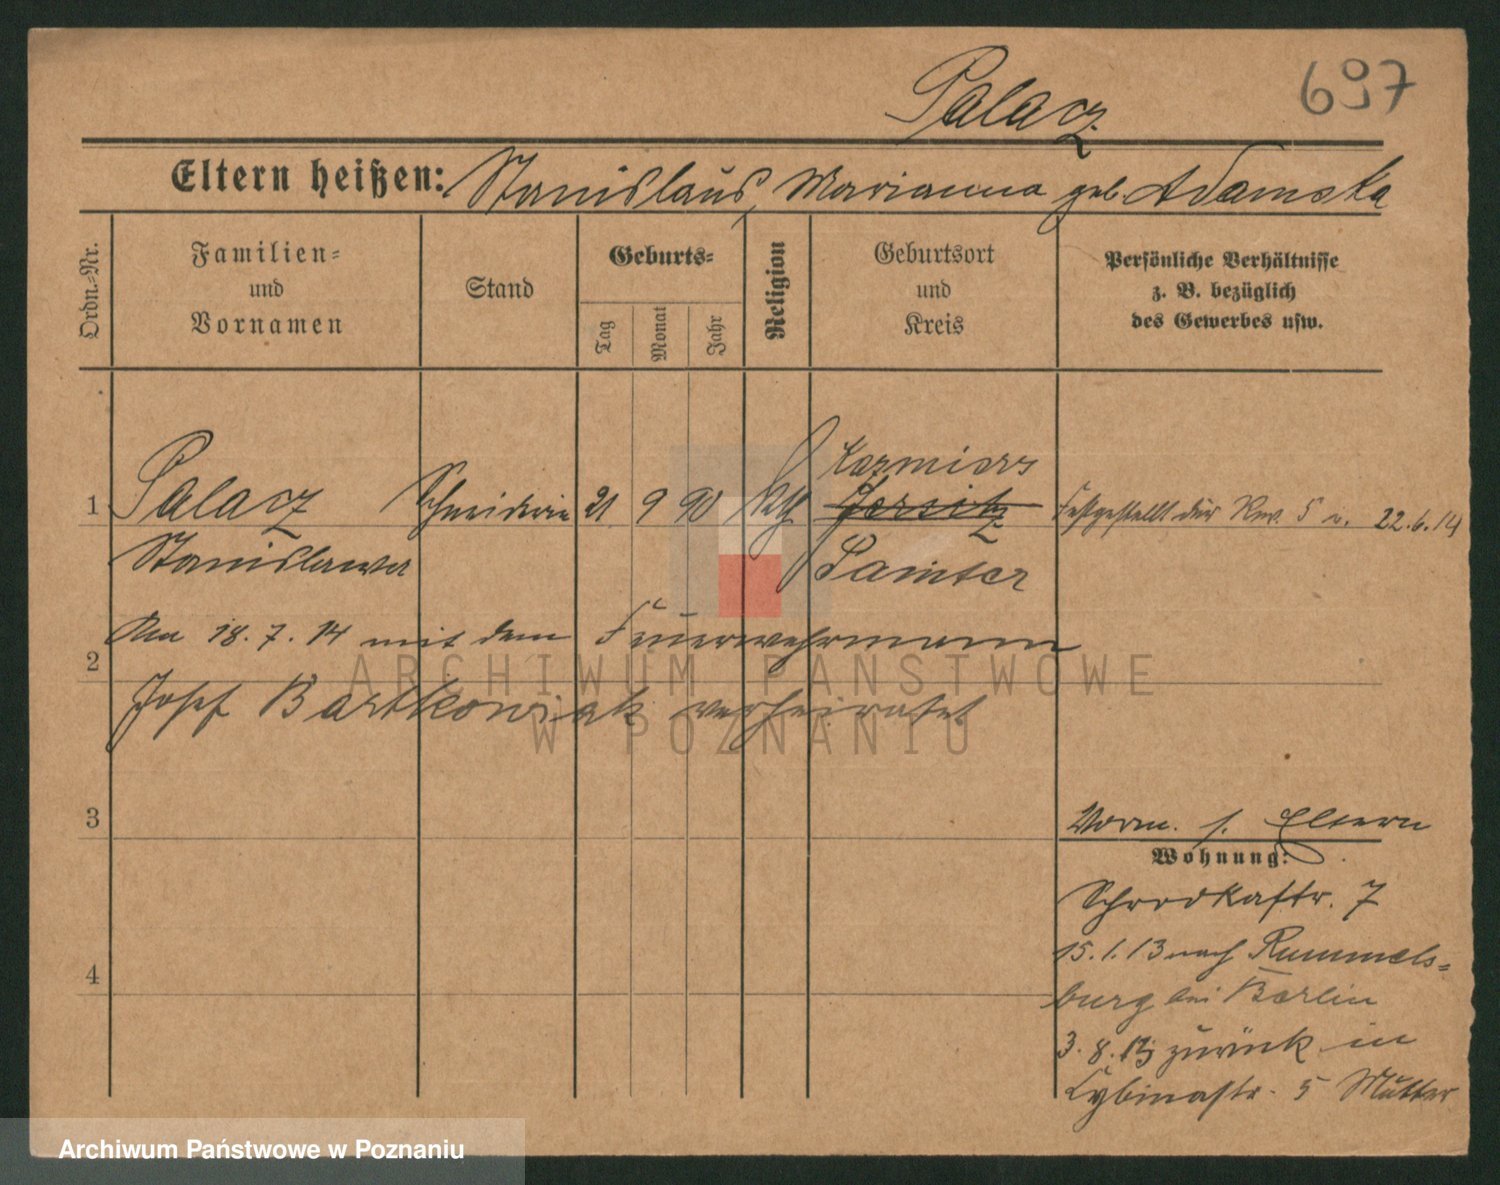 697
Palacz
Eltern heißen: Stanislaus, Marianna geb. Adamska
Ordn.-Nr.
Familien-
und
Vornamen
Stand
Geburts-
Tag
Monat
Jahr
Religion
Geburtsort
und
Kreis
Persönliche Verhältnisse
z. B. bezüglich
des Gewerbes usw.
Kazmierz
1 Palacz Schneiderin 21 9 90 kath Gorsitz Festgestellt dur Rev. 5 v. 22.6.14
Stanislawa Samter
Am 18.7.14 mit dem Feuerwehrmann
2
Josef Bartkowiak verheiratet
ARCHIWUM PAŃSTWOWE
W POZNANIU
3
Vorm. s. Eltern
Wohnung:
Schrodkastr. 7
15.1.13 nach Rummels-
4
burg bei Berlin
3.8.13 zurück in
Cybinastr. 5 Mutter
Archiwum Państwowe w Poznaniu